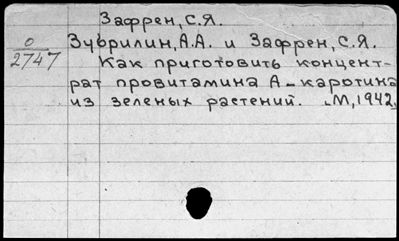 Зафрен, С.Я.
О
2747
Зубрилин, А.А. и Зафрен, С.Я.
Как приготовить концент-
рат провитамина А-каротина
из зеленых растений. М, 1942.